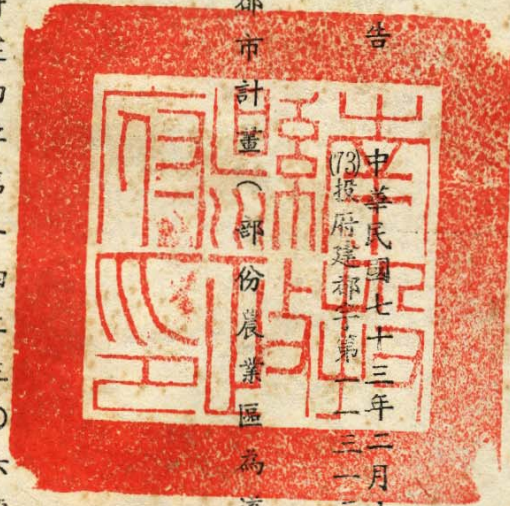 告
中華民國七十三年二月
(73)投府建都字第一一三一
都市計畫(部份農業區為
南投縣政府印